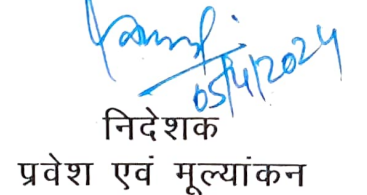 05/4/2024
निदेशक
प्रवेश एवं मूल्यांकन